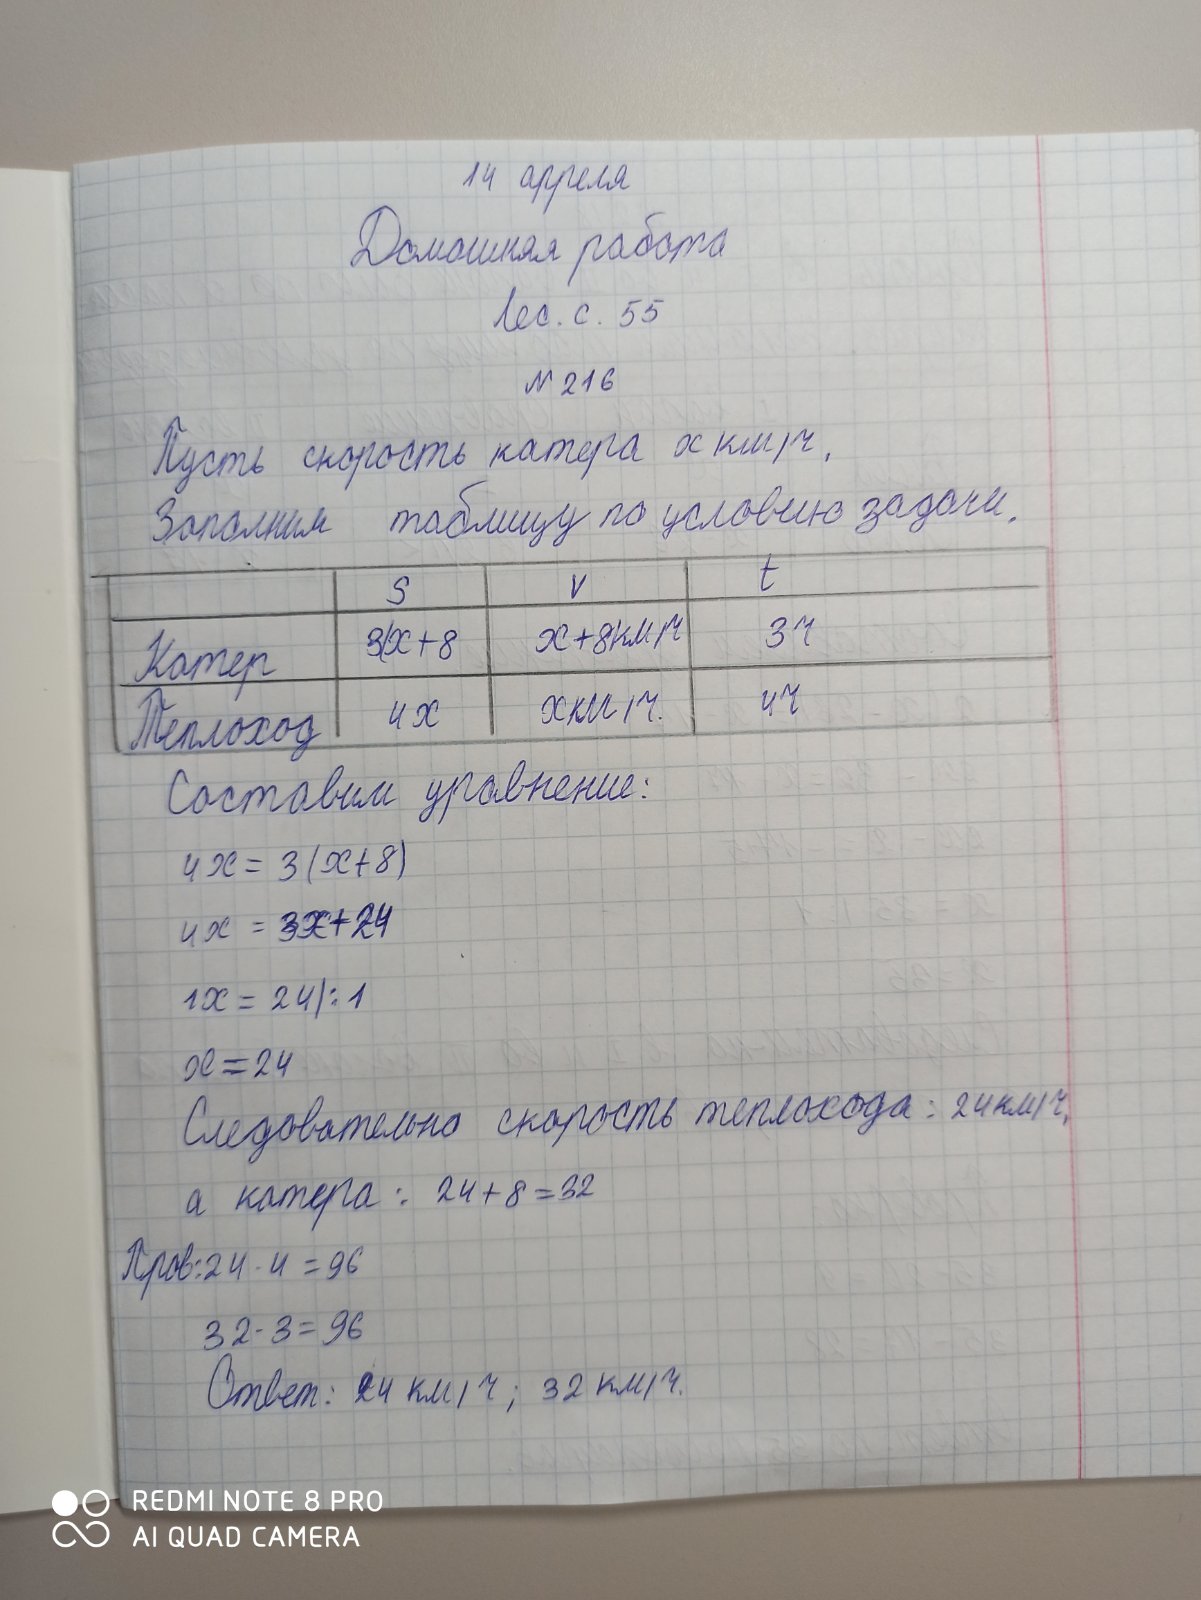 14 апреля
Домашняя работа
Лес. с. 55
№ 216
Пусть скорость катера x км/ч.
Заполним таблицу по условию задачи.
S V t
Катер 3(x+8 x+8км/ч 3ч
Теплоход 4x xкм/ч. 4ч
Составим уравнение:
4x = 3(x+8)
4x = 3x+24
1x = 24|:1
x = 24
Следовательно скорость теплохода: 24км/ч,
а катера: 24+8=32
Пров: 24·4=96
32·3=96
Ответ: 24 км/ч; 32 км/ч.
REDMI NOTE 8 PRO
AI QUAD CAMERA